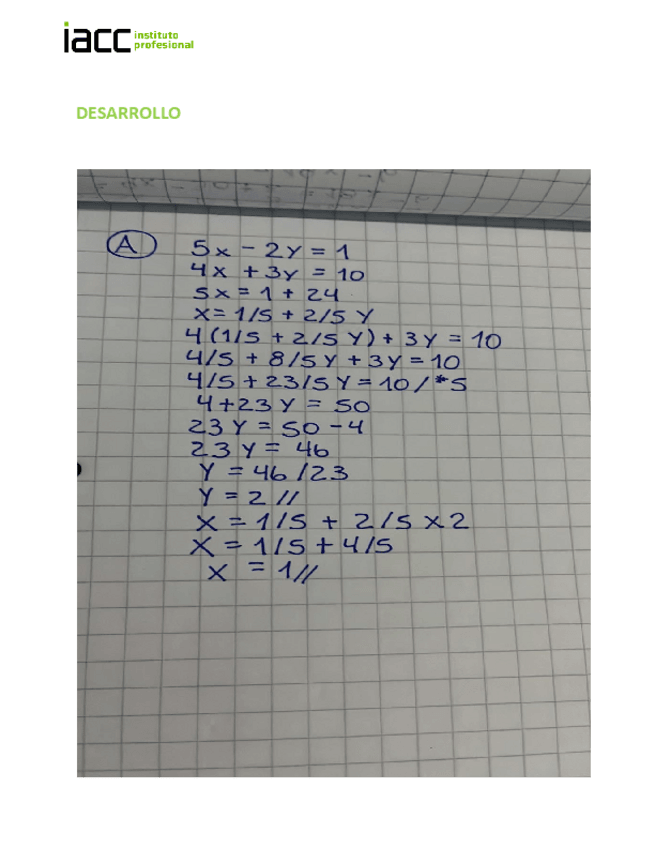 iacc instituto profesional
DESARROLLO
A 5x - 2y = 1
4x + 3y = 10
5x = 1 + 24
x = 1/5 + 2/5 y
4(1/5 + 2/5 y) + 3y = 10
4/5 + 8/5 y + 3y = 10
4/5 + 23/5 y = 10 / *5
4 + 23 y = 50
23 y = 50 - 4
23 y = 46
y = 46 / 23
y = 2 //
x = 1/5 + 2/5 x 2
x = 1/5 + 4/5
x = 1 //